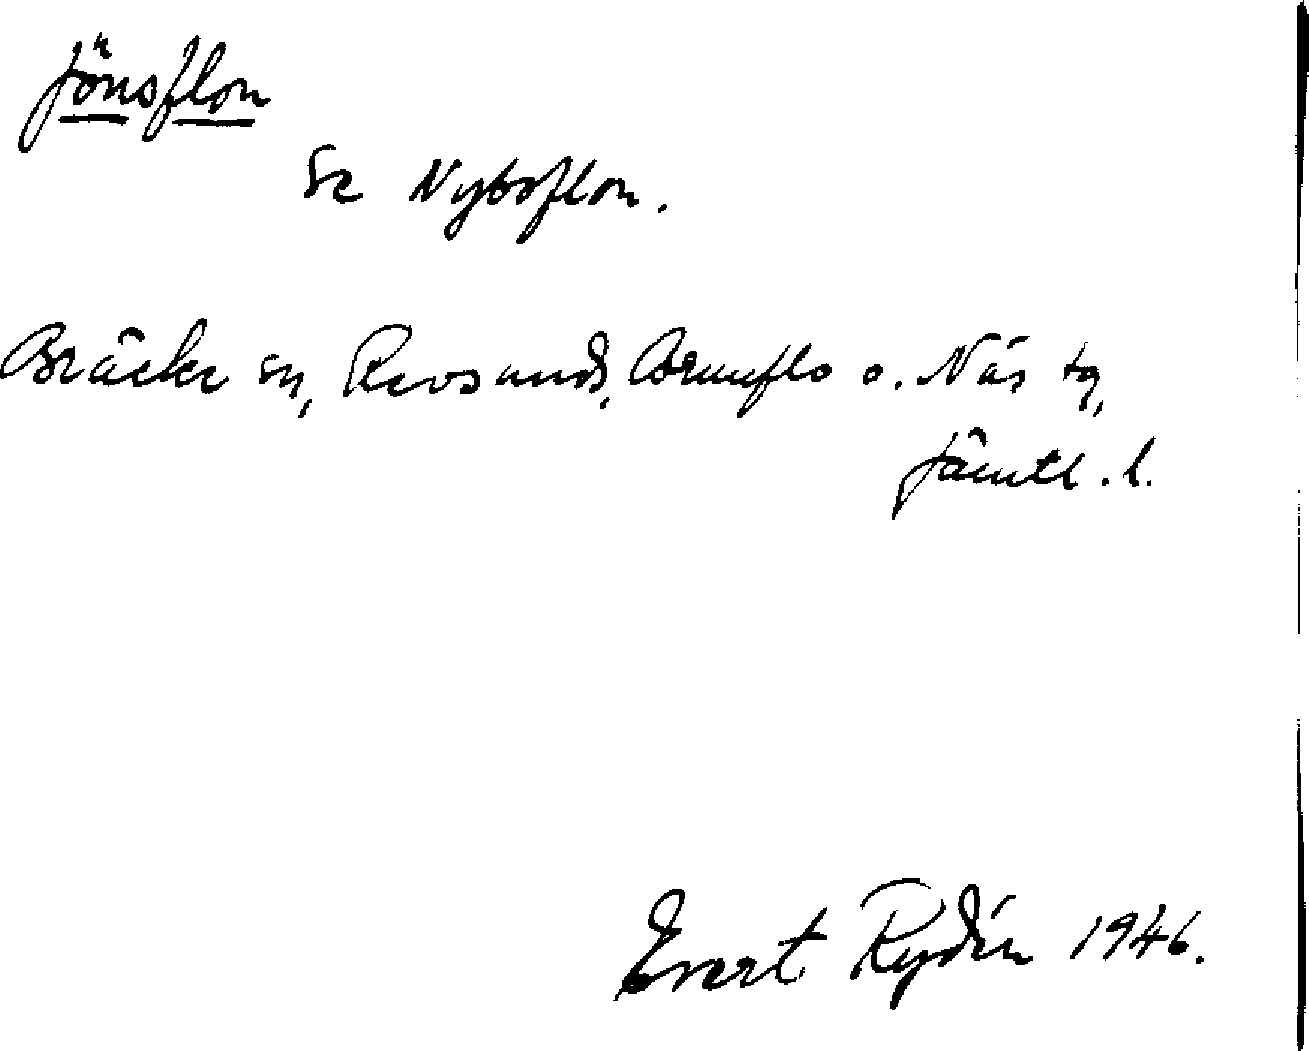 Jönsflon
Se Nyboflon.
Bräcke sn, Revsunds, Brunflo o. Näs tg,
Jämtl. l.
Evert Rydén 1946.